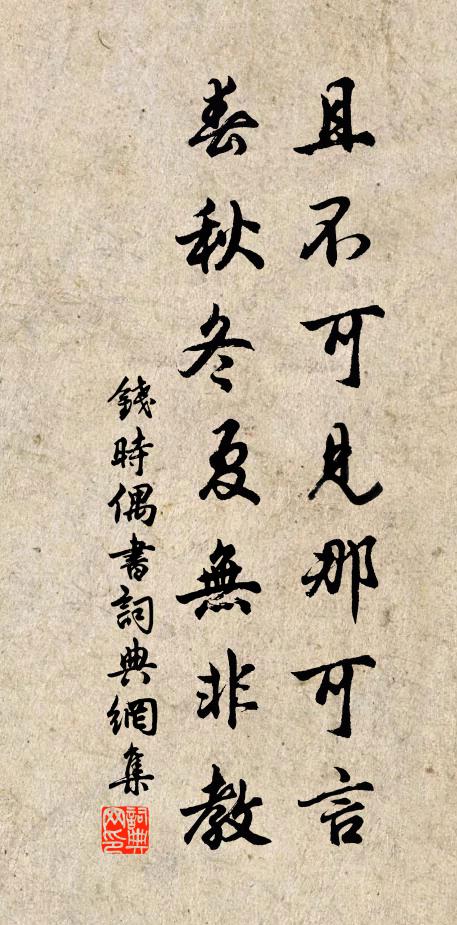 且不可見那可言
春秋冬夏無非教
錢時偶書詞典網集
詞典
网印